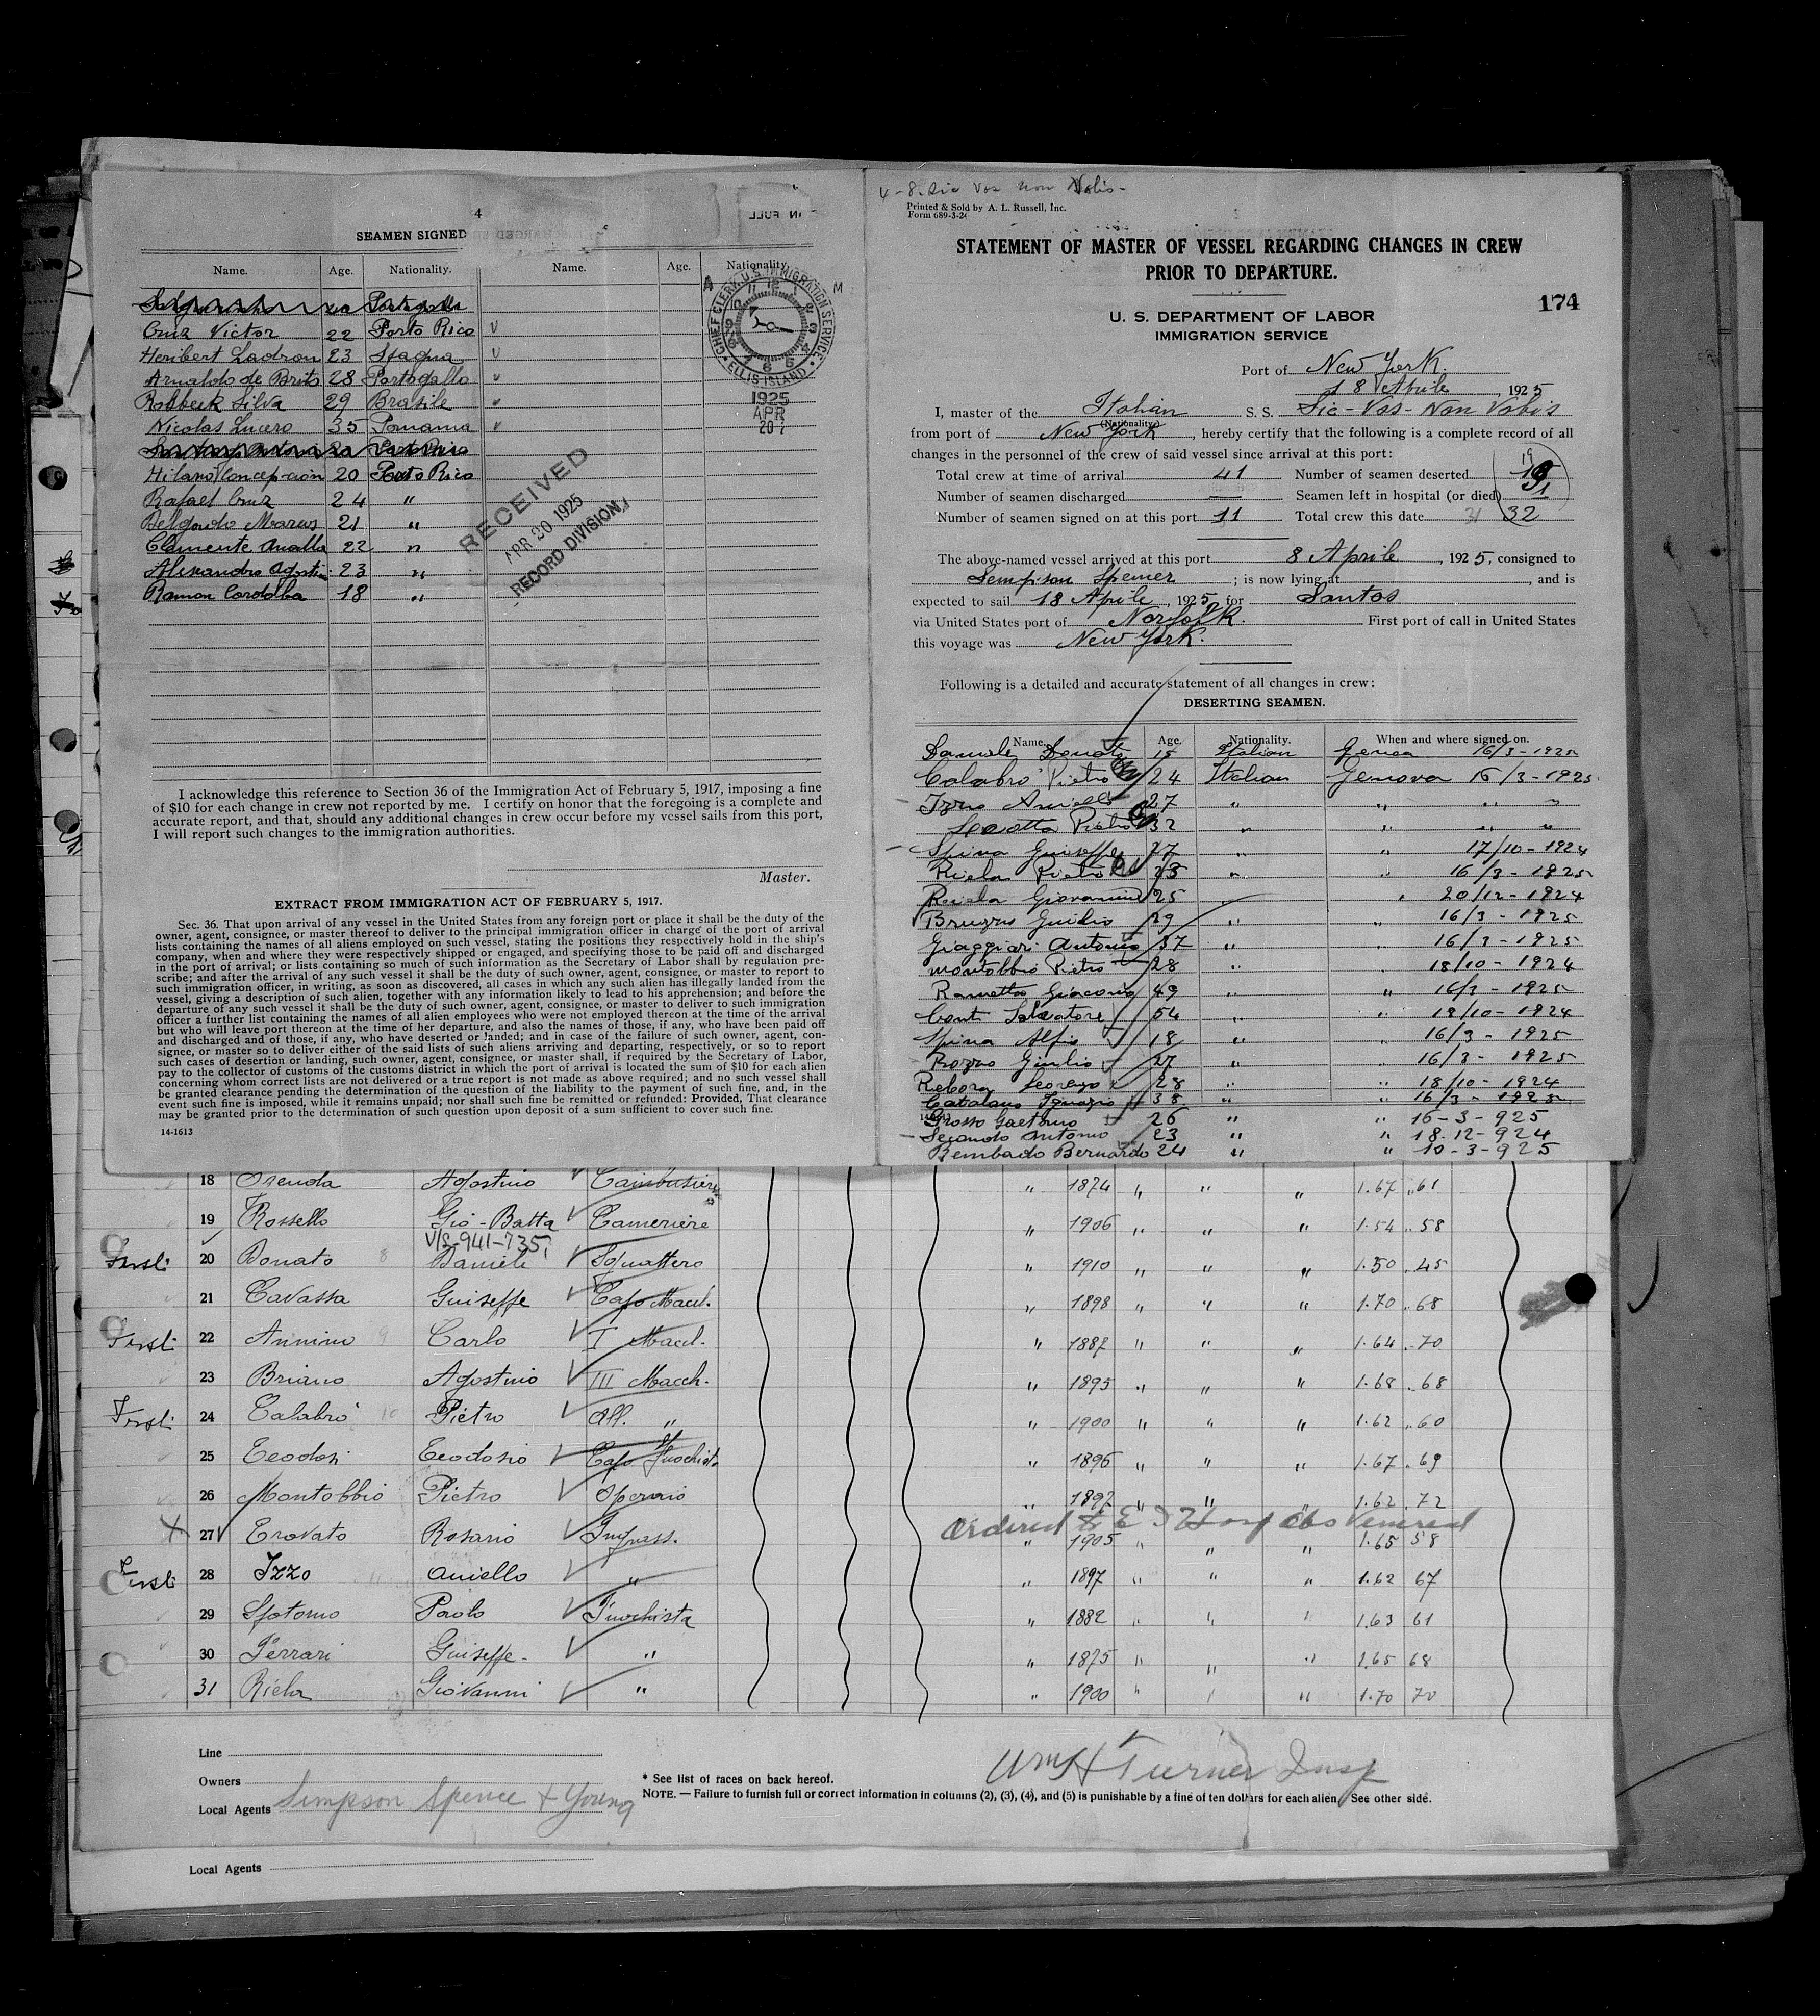 4
SEAMEN SIGNED
Name. Age. Nationality. Name. Age. Nationality.
Cruz Victor 22 Porto Rico
Heribert Ladron 23 Spagna
Arnaldo de Brito 28 Portogallo
Robbeck Silva 29 Brasile
Nicolas Lucero 35 Panama
Hilano Concepcion 20 Porto Rico
Rafael Cruz 24 "
Delgado Marcus 21 "
Clemente 22 "
Alexandro Agostin 23 "
Ramon Cordoba 18 "
CHIEF CLERK, U.S. IMMIGRATION SERVICE
ELLIS ISLAND
1925
APR
20
RECEIVED
APR 20 1925
RECORD DIVISION
I acknowledge this reference to Section 36 of the Immigration Act of February 5, 1917, imposing a fine
of $10 for each change in crew not reported by me. I certify on honor that the foregoing is a complete and
accurate report, and that, should any additional changes in crew occur before my vessel sails from this port,
I will report such changes to the immigration authorities.
Master.
EXTRACT FROM IMMIGRATION ACT OF FEBRUARY 5, 1917.
Sec. 36. That upon arrival of any vessel in the United States from any foreign port or place it shall be the duty of the
owner, agent, consignee, or master thereof to deliver to the principal immigration officer in charge of the port of arrival
lists containing the names of all aliens employed on such vessel, stating the positions they respectively hold in the ship's
company, when and where they were respectively shipped or engaged, and specifying those to be paid off and discharged
in the port of arrival; or lists containing so much of such information as the Secretary of Labor shall by regulation pre-
scribe; and after the arrival of any such vessel it shall be the duty of such owner, agent, consignee, or master to report to
such immigration officer, in writing, as soon as discovered, all cases in which any such alien has illegally landed from the
vessel, giving a description of such alien, together with any information likely to lead to his apprehension; and before the
departure of any such vessel it shall be the duty of such owner, agent, consignee, or master to deliver to such immigration
officer a further list containing the names of all alien employees who were not employed thereon at the time of the arrival
but who will leave port thereon at the time of her departure, and also the names of those, if any, who have been paid off
and discharged and of those, if any, who have deserted or landed; and in case of the failure of such owner, agent, con-
signee, or master so to deliver either of the said lists of such aliens arriving and departing, respectively, or so to report
such cases of desertion or landing, such owner, agent, consignee, or master shall, if required by the Secretary of Labor,
pay to the collector of customs of the customs district in which the port of arrival is located the sum of $10 for each alien
concerning whom correct lists are not delivered or a true report is not made as above required; and no such vessel shall
be granted clearance pending the determination of the question of the liability to the payment of such fine, and, in the
event such fine is imposed, while it remains unpaid; nor shall such fine be remitted or refunded: Provided, That clearance
may be granted prior to the determination of such question upon deposit of a sum sufficient to cover such fine.
14-1613
4-8. Sic Vos non Vobis-
Printed & Sold by A. L. Russell, Inc.
Form 689-3-24
STATEMENT OF MASTER OF VESSEL REGARDING CHANGES IN CREW
PRIOR TO DEPARTURE.
174
U. S. DEPARTMENT OF LABOR
IMMIGRATION SERVICE
Port of New York
18 Aprile, 1925
I, master of the Italian S. S. Sic-Vos-Non Vobis
(Nationality)
from port of New York, hereby certify that the following is a complete record of all
changes in the personnel of the crew of said vessel since arrival at this port:
Total crew at time of arrival 41 Number of seamen deserted 19
Number of seamen discharged — Seamen left in hospital (or died) 1
Number of seamen signed on at this port 11 Total crew this date 31 32
The above-named vessel arrived at this port 8 Aprile, 1925, consigned to
Sempison Spencer; is now lying at, and is
expected to sail 18 Aprile, 1925, for Santos
via United States port of Norfolk. First port of call in United States
this voyage was New York.
Following is a detailed and accurate statement of all changes in crew:
DESERTING SEAMEN.
Name. Age. Nationality. When and where signed on.
Daniele Donato 15 Italian Genoa 16/3-1925
Calabro' Pietro 24 Italian Genova 16/3-1925
Izzo Aniello 27 " " " "
Pietro 32 " " " "
Spina Guiseppe 27 " " 17/10-1924
Riela Pietro 28 " " 16/3-1925
Riela Giovanni 25 " 20/12-1924
Bruzzo Guilio 29 " " 16/3-1925
Giaggiari Antonio 37 " 16/3-1925
Montobbio Pietro 28 " 18/10-1924
Rametta Giacomo 49 " " 16/3-1925
Conti Salvatore 54 " 18/10-1924
Spina Alfio 18 " " 16/3-1925
Rozzo Giulio 27 " 16/3-1925
Rebora Lorenzo 28 " " 18/10-1924
Catalano Ignazio 38 " " 16/3-1925
Grosso Gaetano 26 " " 16-3-925
Secondo Antonio 23 " " 18.12-924
Rembado Bernardo 24 " " 10-3-925
18 Orenda Agostino Cambusiere " 1874 " " " 1.67 " 61
19 Rossello Gio-Batta Cameriere " 1906 " " 1.54 " 58
V/S-941-735
20 Donato Daniele Squattero " 1910 " " " 1.50 " 45
21 Cavassa Guiseppe Capo Macch. " 1898 " " " 1.70 " 68
22 Annino Carlo I Macch. " 1887 " " " 1.64 " 70
23 Briano Agostino III Macch. " 1895 " " " 1.68 " 68
24 Calabro' Pietro All. " " 1900 " " " 1.62 " 60
25 Teodosio Capo Fuochista " 1896 " " " 1.67 " 69
26 Montobbio Pietro Operaio " 1897 " " 1.62 " 72
Ordered to E I Hosp
27 Trovato Rosario Ingrass. " 1905 " " " 1.65 58
28 Izzo Aniello " " 1897 " " " 1.62 67
29 Spotorno Paolo Fuochista " 1882 " " " 1.63 61
30 Ferrari Guiseppe " " 1875 " " " 1.65 68
31 Riela Giovanni " " 1900 " " " 1.70 70
Line
Owners
Local Agents Simpson Spence & Young
* See list of races on back hereof.
NOTE. — Failure to furnish full or correct information in columns (2), (3), (4), and (5) is punishable by a fine of ten dollars for each alien. See other side.
Wm H Turner Insp
Local Agents